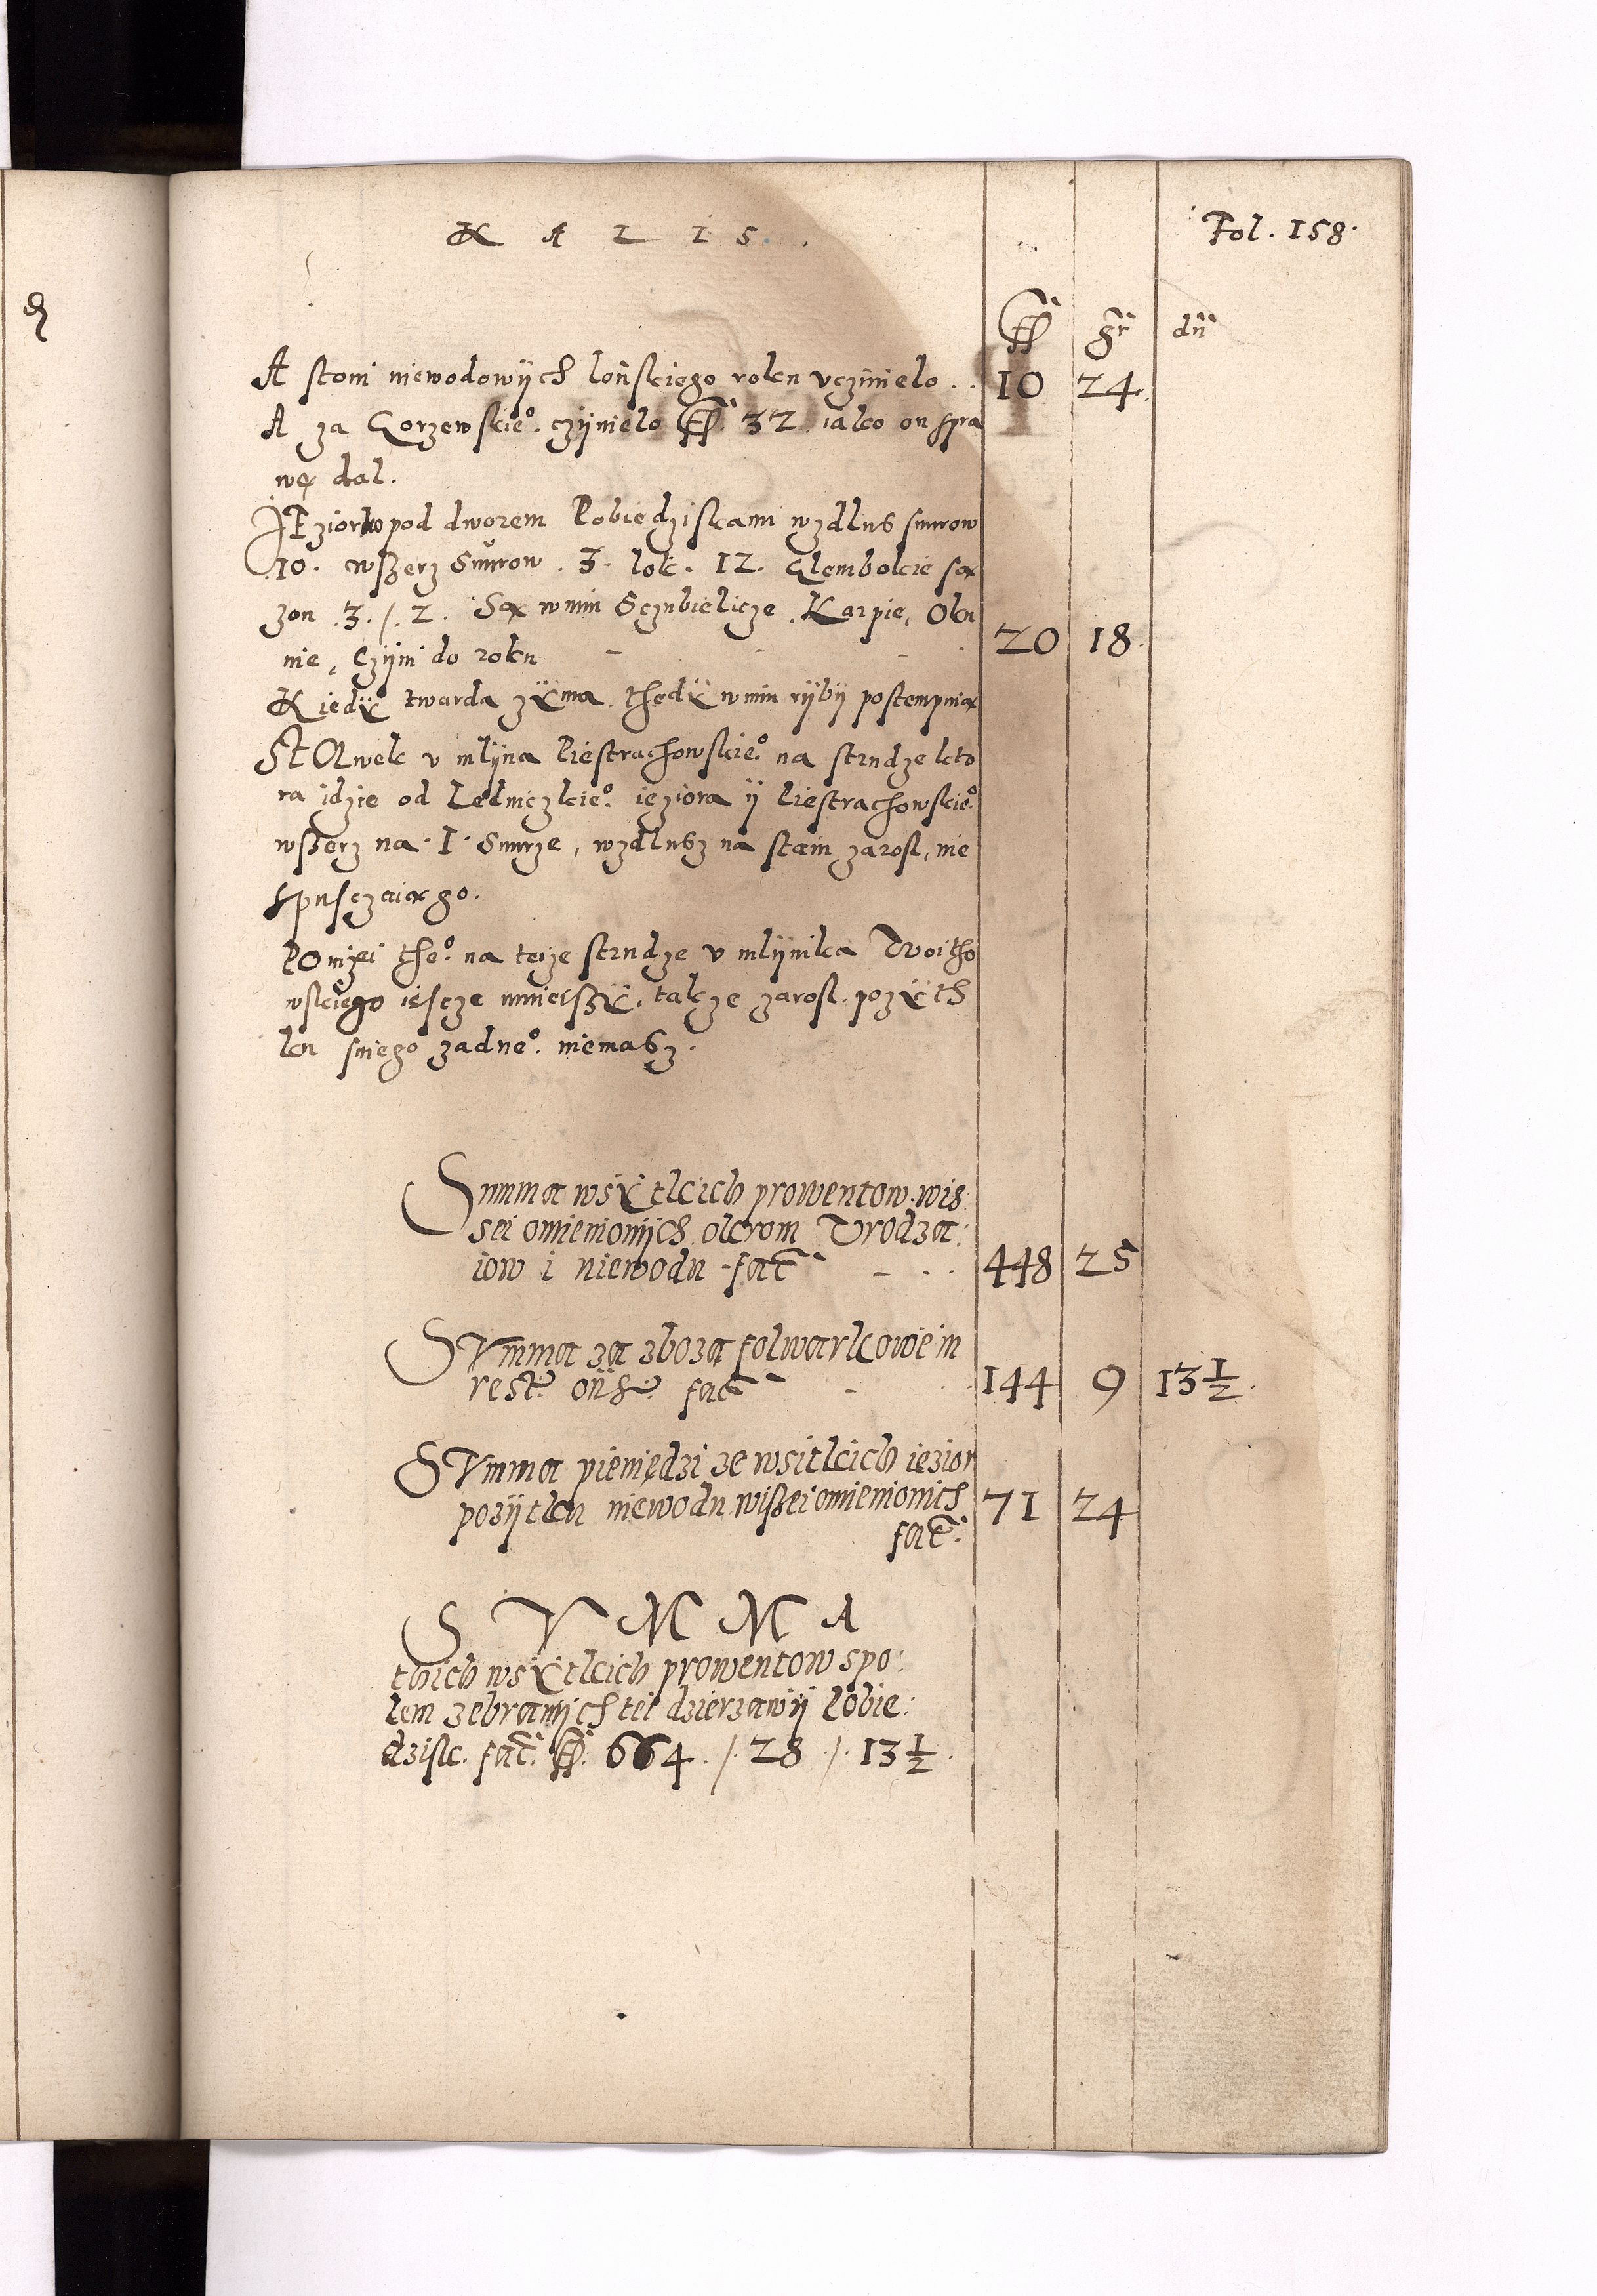 K A L I S.
Fol. 158.
fl gr dn
A stoni niewodowÿch lońskiego roku vczinielo . . 10 24
A za Gorzewskie°. czÿnielo fl. 32. iako on spra
wę dal.
IEziorko pod dworem Pobiedziskami wzdlus snurow
10. wßerz Snurow . 3. lok. 12. Glembokie są
zon .3. /. 2. Są wnim Sczubielicze . Karpie, Oku
nie, Czÿni do roku - - . 20 18.
Kiedÿ twarda zÿma thedÿ wnim rÿbÿ postempuią
STAwek v mlÿna Piestrachowskie°. na strudze kto
ra idzie od Lednczkie°. ieziora ÿ Piestrachowskie°
wßerz na . 1 . Snurze, wzdlusz na stain zarosl, nie
spusczaią go.
POnizei the°. na teize strudze v mlÿnika Woitho
wskiego iescze mnieißÿ. takze zarosl. pozÿth
ku sniego zadne°. niemasz.
Summa wsÿtkich prowentow. wis
sei omienionÿch okrom Vrodza:
iow i niewodu - fac̃ - . . 448 25
SVmma za zboza folwarkowe in
rest: fac̃ - . 144 9 13 1/2.
SVmma pieniędzi ze wsitkich iezior
pozÿtku niewodu wißei omienionich 71 24
fac̃.
S V M M A
thich wsÿtkich prowentow spo:
lem zebranÿch tei dzierzawÿ Pobie:
dzisk. fac̃. fl. 664 . /. 28 . /. 13 1/2 .